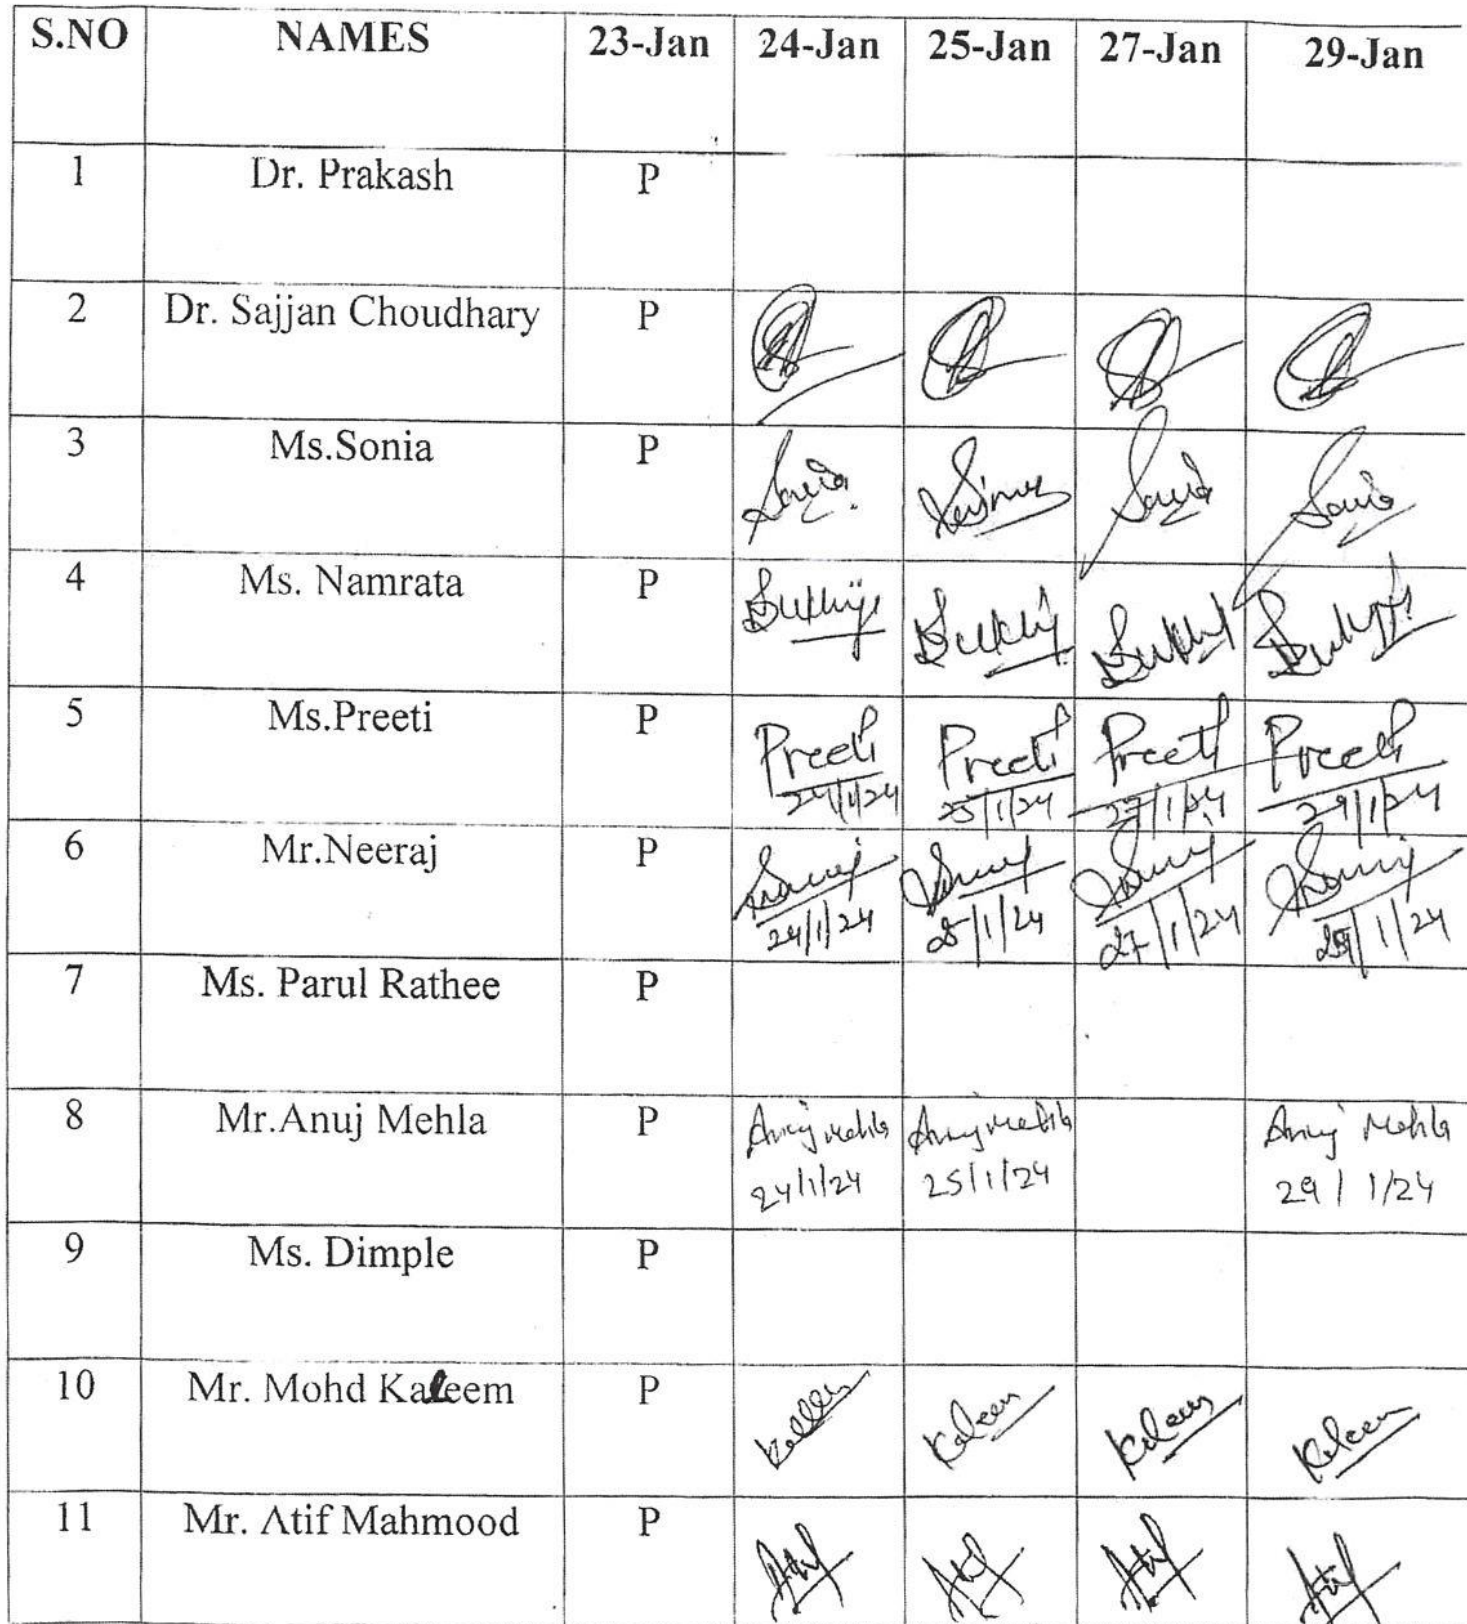 S.NO NAMES 23-Jan 24-Jan 25-Jan 27-Jan 29-Jan
1 Dr. Prakash P
2 Dr. Sajjan Choudhary P
3 Ms.Sonia P Sonia Sonia Sonia
4 Ms. Namrata P
5 Ms.Preeti P Preeti Preeti Preeti Preeti
24/1/24 25/1/24 27/1/24 29/1/24
6 Mr.Neeraj P
24/1/24 25/1/24 27/1/24 29/1/24
7 Ms. Parul Rathee P
8 Mr.Anuj Mehla P Anuj Mehla Anuj Mehla Anuj Mehla
24/1/24 25/1/24 29/1/24
9 Ms. Dimple P
10 Mr. Mohd Kaleem P Kaleem Kaleem Kaleem Kaleem
11 Mr. Atif Mahmood P Atif Atif Atif Atif